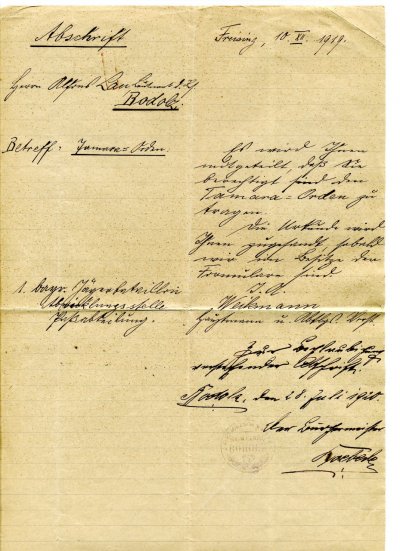 Abschrift
Freising, 10. XII. 1919.
Herrn Alfons Lau Leutnant d. R.
Bodolz.
Betreff: Tamara-Orden.
Es wird Ihnen
mitgeteilt, daß Sie
berechtigt sind den
Tamara-Orden zu
tragen.
Die Urkunde wird
Ihnen zugesandt, sobald
wir im Besitze der
Formulare sind.
1. Bayr. Jägerbataillon
Abwicklungsstelle
Paßabteilung.
I. A.
Weikmann
Hauptmann u. Abtlgs. Vorst.
Zur Beglaubigung
vorstehender Abschrift.
Bodolz, den 28. Juli 1920
Der Bürgermeister